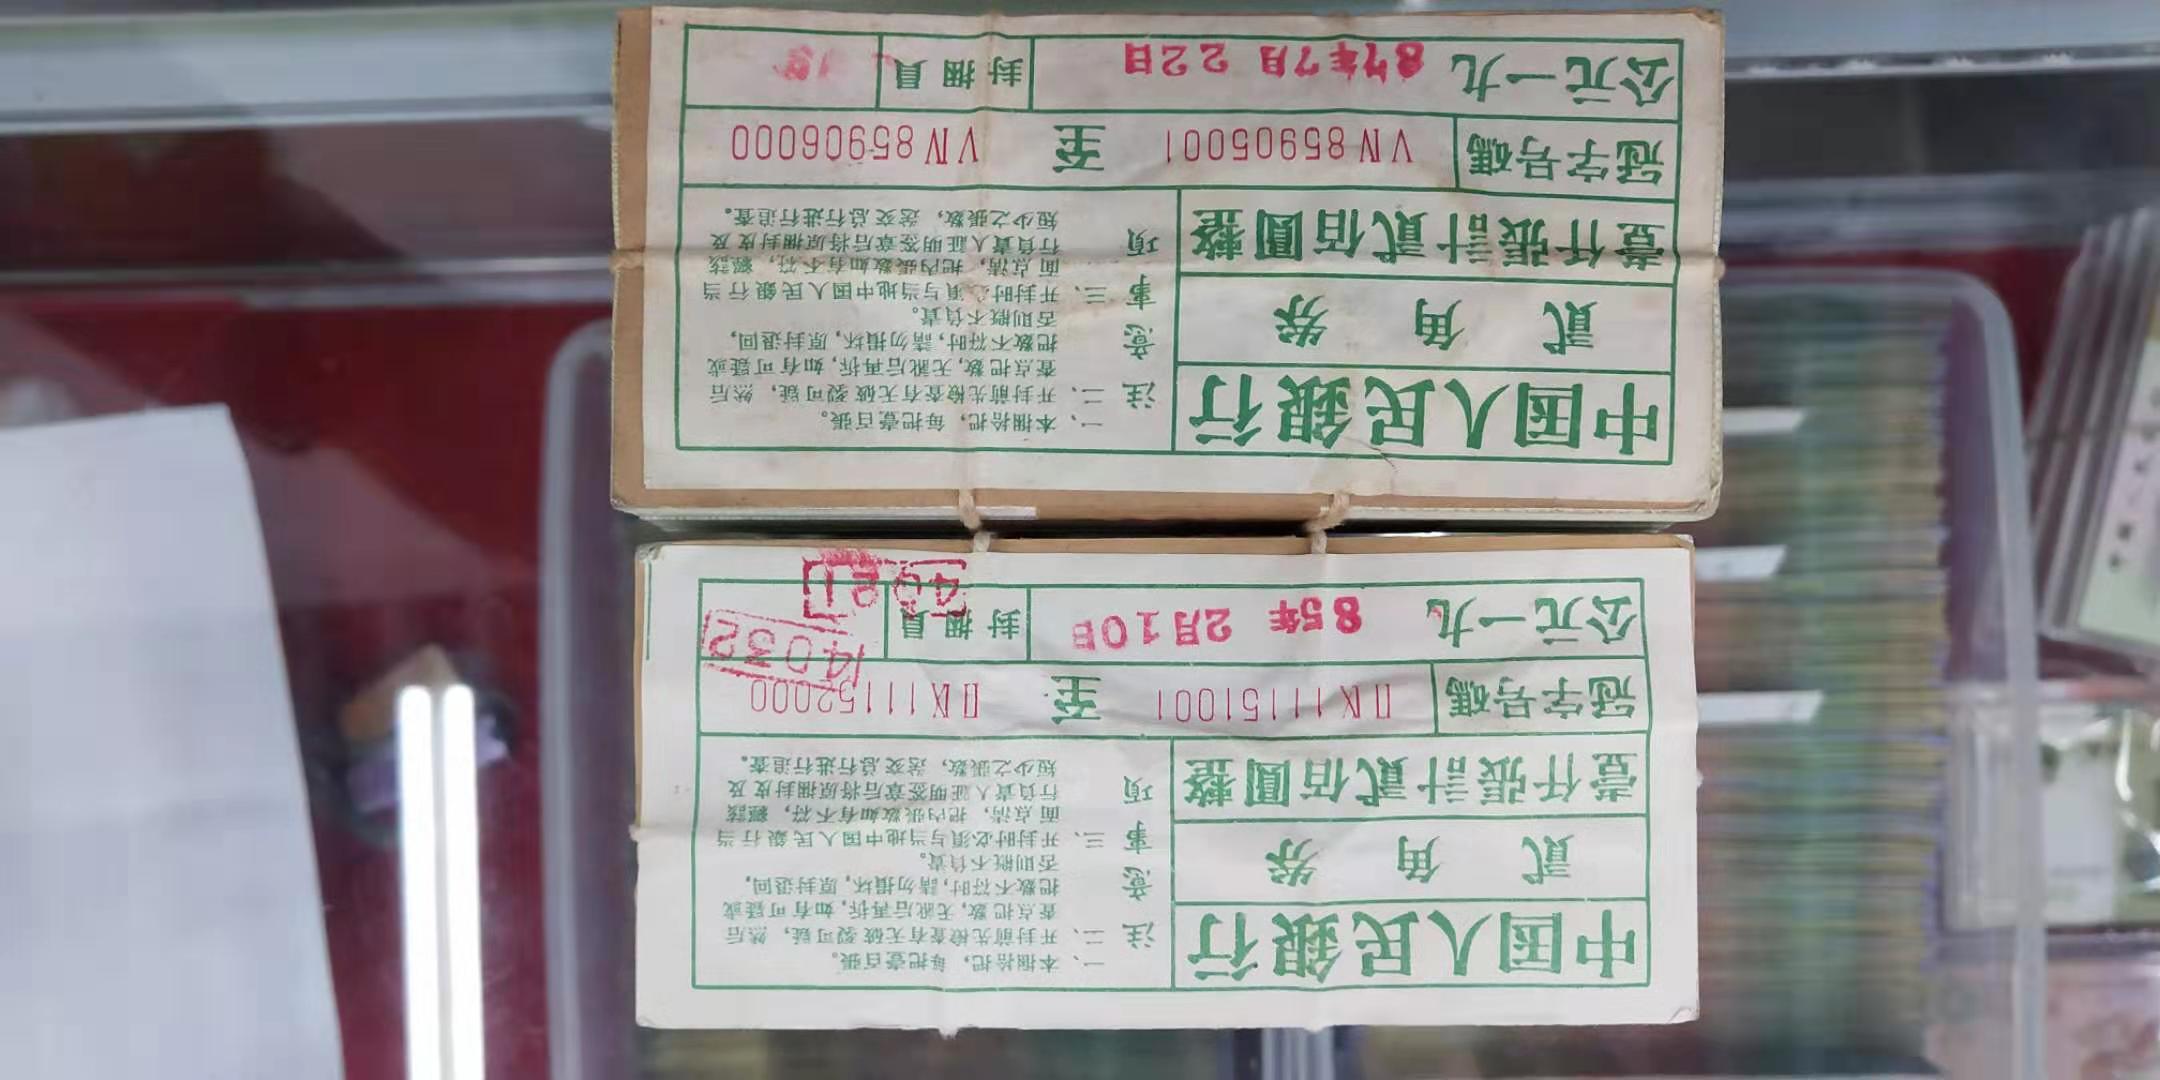 中国人民銀行
貳角券
壹仟張計貳佰圓整
注意事項
一、本捆拾把,每把壹百張。
二、开封前先檢查有无破裂可疑,然后
查点把数,无訛后再拆,如有可疑或
把数不符时,請勿損坏,原封退回,
否則概不負責。
三、开封时必須与当地中国人民銀行当
面点清,把内張数如有不符,經該
行負責人証明签章后将原捆封皮及
短少之張数,送交总行進行追查。
冠字号碼 ⅡⅨ11151001 至 ⅡⅨ11152000
公元一九85年2月10日 封捆員
4032
中国人民銀行
貳角券
壹仟張計貳佰圓整
注意事項
一、本捆拾把,每把壹百張。
二、开封前先檢查有无破裂可疑,然后
查点把数,无訛后再拆,如有可疑或
把数不符时,請勿損坏,原封退回,
否則概不負責。
三、开封时必須与当地中国人民銀行当
面点清,把内張数如有不符,經該
行負責人証明签章后将原捆封皮及
短少之張数,送交总行進行追查。
冠字号碼 ⅤⅣ85905001 至 ⅤⅣ85906000
公元一九87年7月22日 封捆員